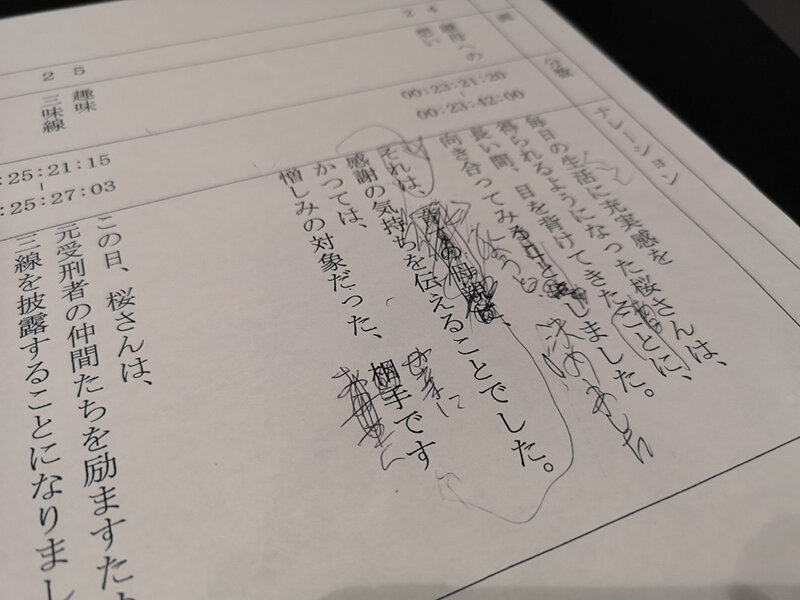 画
分数
ナレーション
24
義母への
想い
00:23:21:20
00:23:42:00
毎日の生活に充実感を
得られるようになった桜さんは、
長い間、目を背けてきたことに、
向き合ってみ
しました。
決めました
それは、
感謝の気持ちを伝えることでした。
かつては、
憎しみの対象だった、
相手です
25
趣味
2
三味線
:25:21:15
:25:27:03
この日、桜さんは、
元受刑者の仲間たちを励ますため
三線を披露することになりまし